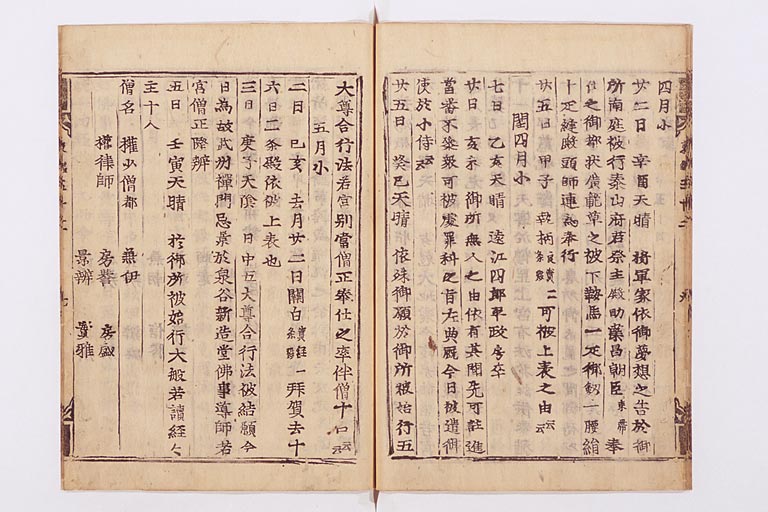 四月小
廿二日 辛酉天晴 將軍家依御夢想之告於御
所南庭被行泰山府君祭主殿助藥昌朝臣束帶奉
仕之御都状廣範草之被下鞍馬一疋御釼一腰絹
十疋縫殿頭師連為奉行
閏四月小
廿五日 甲子 執柄良實二条殿可被上表之由云云
七日 乙亥天晴 遠江四郎平政房卒
廿日 亥 御所無人之由依有其聞先可註進
當番不参輩可被處罪科之旨左典厩今日被遣御
使於小侍云云
廿五日 癸巳天晴 依殊御願於御所被始行五
大尊合行法若宮別當僧正奉仕之率伴僧十口云云
五月小
二日 己亥 去月廿二日關白實經一条殿拜賀去十
六日二条殿依被上表也
三日 庚子天陰 日中五大尊合行法被結願今
日為故武州禪門忌景於泉谷新造堂佛事導師若
宮僧正隆辨
五日 壬寅天晴 於御所被始行大般若讀經々
主十人
僧名 權少僧都 兼伊 房嚴
權律師 房譽 寛雅
景辨